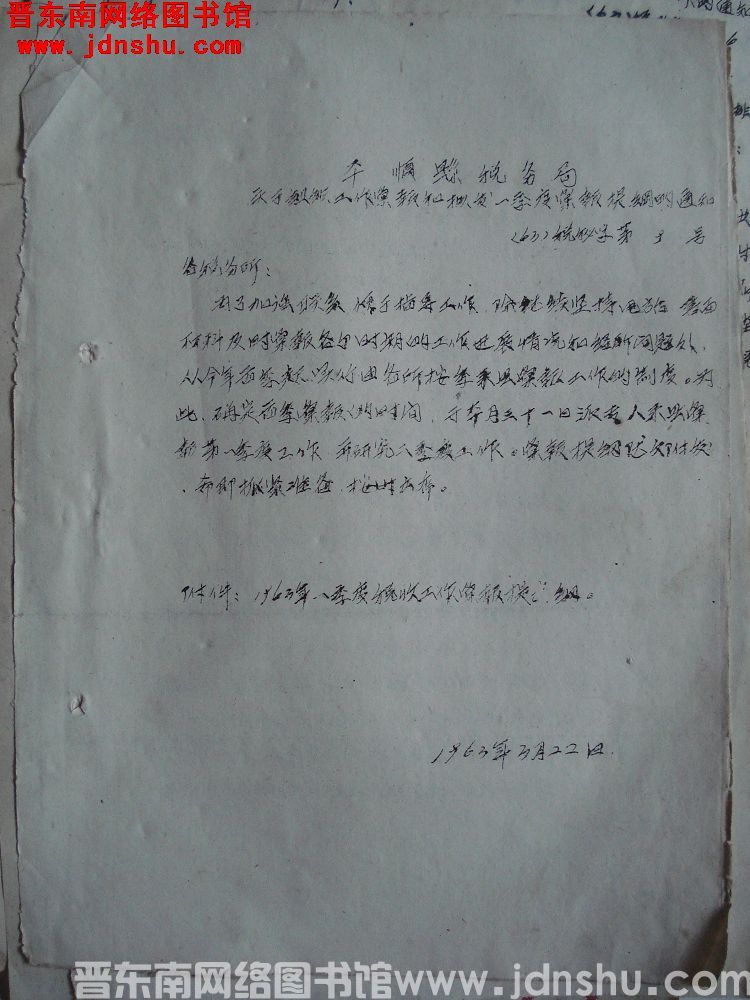 晋东南网络图书馆
www.jdnshu.com
平顺县税务局
关于 工作汇报和拟发一季度汇报提纲的通知
(63)税秘字第3号
各税务所:
为了加强联系 便于指导工作,除继续坚持电话 书面
材料及时汇报各个时期的工作进展情况和 问题外,
从今年 季度 实行由各所按季来县汇报工作的制度。为
此,确定 季汇报 的时间,于本月三十一日派 人来县汇
报第一季度工作 并研究二季度工作。汇报提纲随文附发
,希即抓紧准备, 。
附件:1963年一季度税收工作汇报提纲。
1963年3月22日.
晋东南网络图书馆www.jdnshu.com